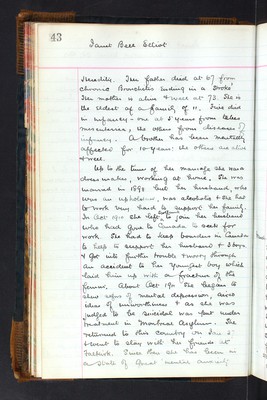 43
Janet Bell Elliot
Heredity. Her father died at 67 from
chronic Bronchitis ending in a Stroke
Her mother is alive & well at 73. She is
the eldest of a family of 11. Five died
in infancy - one at 5 years from tabes
mesenterica, the others from diseases of
infancy. A brother has been mentally
affected for 10 years: the others are alive
& well.
Up to the time of her marriage she was a
dress maker, working at home. She was
married in 1898 but her husband, who
was an upholsterer, was alcoholic & she had
to work very hard to support her family.
In Oct 1910 she left to join her husband
who had gone to Canada to seek for
work. She had to keep boarders in Canada
to help to support her husband & 3 boys
& got into further trouble & worry through
an accident to her youngest boy which
laid him up with a fracture of the
femur. About Oct 19 she began to
show signs of mental depression, had
ideas of unworthiness & as she was
judged to be suicidal was put under
treatment in Montreal Asylum. She
returned to this country on Jan 5
& went to stay with her friends at
Falkirk. Since then she has been in
a state of great mental anxiety